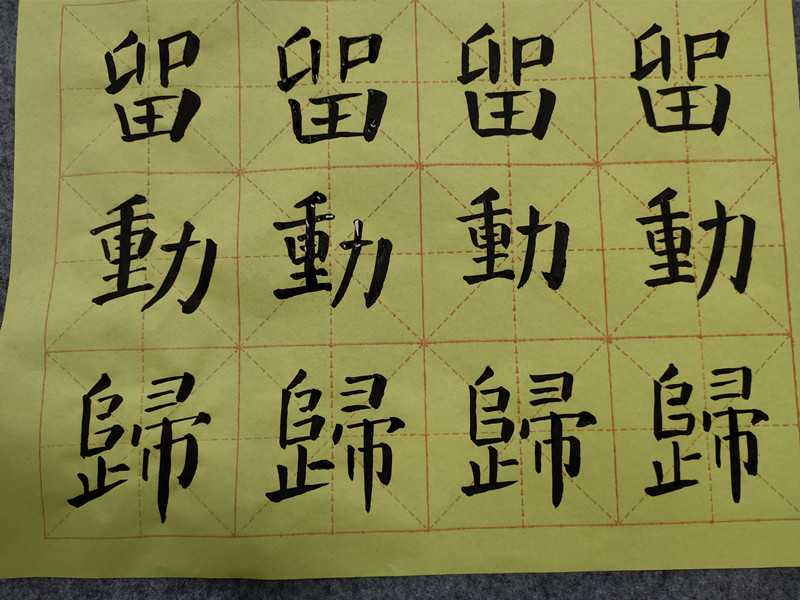 留留留留
動動動動
歸歸歸歸